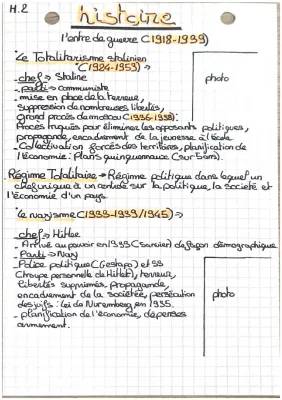 H.2
histoire
l'entre de guerre (1918-1939)
Le Totalitarisme stalinien
(1924-1953) →
- chef → Staline
- parti → communiste
- mise en place de la terreur,
suppression de nombreuses libertés,
grand procès de moscou (1936-1938):
Procès truqués pour éliminer les opposants politiques,
propagande, encadrement de la jeunesse à l'école.
- Collectivation forcés des territoires, planification de
l'économie: Plans quinquennaux (sur 5 ans).
photo
Régime Totalitaire → Régime politique dans lequel un
chef unique à un contrôle sur la politique, la société et
l'économie d'un pays.
Le nazisme (1933-1939/1945) →
- chef → Hitler
- Arrivé au pouvoir en de façon démographique
- Parti → Nazi
- Police politique (Gestapo) et SS
(troupe personnelle de Hitler), terreur,
libertés supprimés, propagande,
encadrement de la société, persécution
des juifs: loi de Nuremberg en 1935.
- planification de l'économie, dépenses
armement.
photo